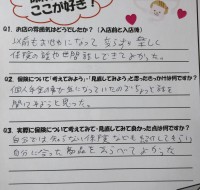 ここが好き！
Q1. お店の雰囲気はどうでしたか？（入店前と入店後）
以前もお世話になって
保険の話や世間話しできてよかった。
Q2. 保険について「考えてみよう」・「見直してみよう」と思ったきっかけは何ですか？
個人年金保険が気になっていたのでちょっと話を
聞いてみようと思った。
Q3. 実際に保険について考えてみて・見直してみて良かった点は何ですか？
自分では知らない保険なども紹介してもらい
自分に合った商品をえらべてよかった